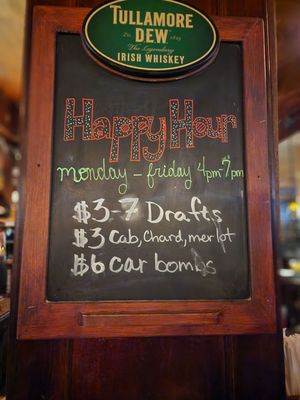 TULLAMORE
DEW
The Legendary
IRISH WHISKEY
Happy Hour
monday - friday 4pm-7pm
$3-7 Drafts
$3 Cab, Chard, merlot
$6 car bombs